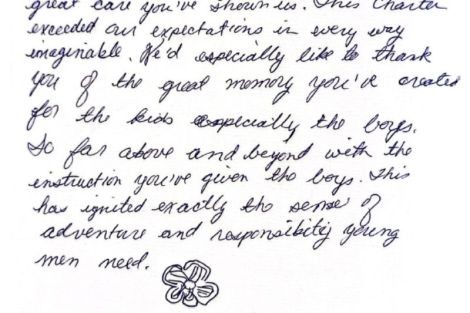 great care you've shown us. This Charter
exceeded our expectations in every way
imaginable. We'd especially like to thank
you of the great memory you've created
for the kids especially the boys.
So far above and beyond with the
instruction you've given the boys. This
has ignited exactly the sense of
adventure and responsibility young
men need.